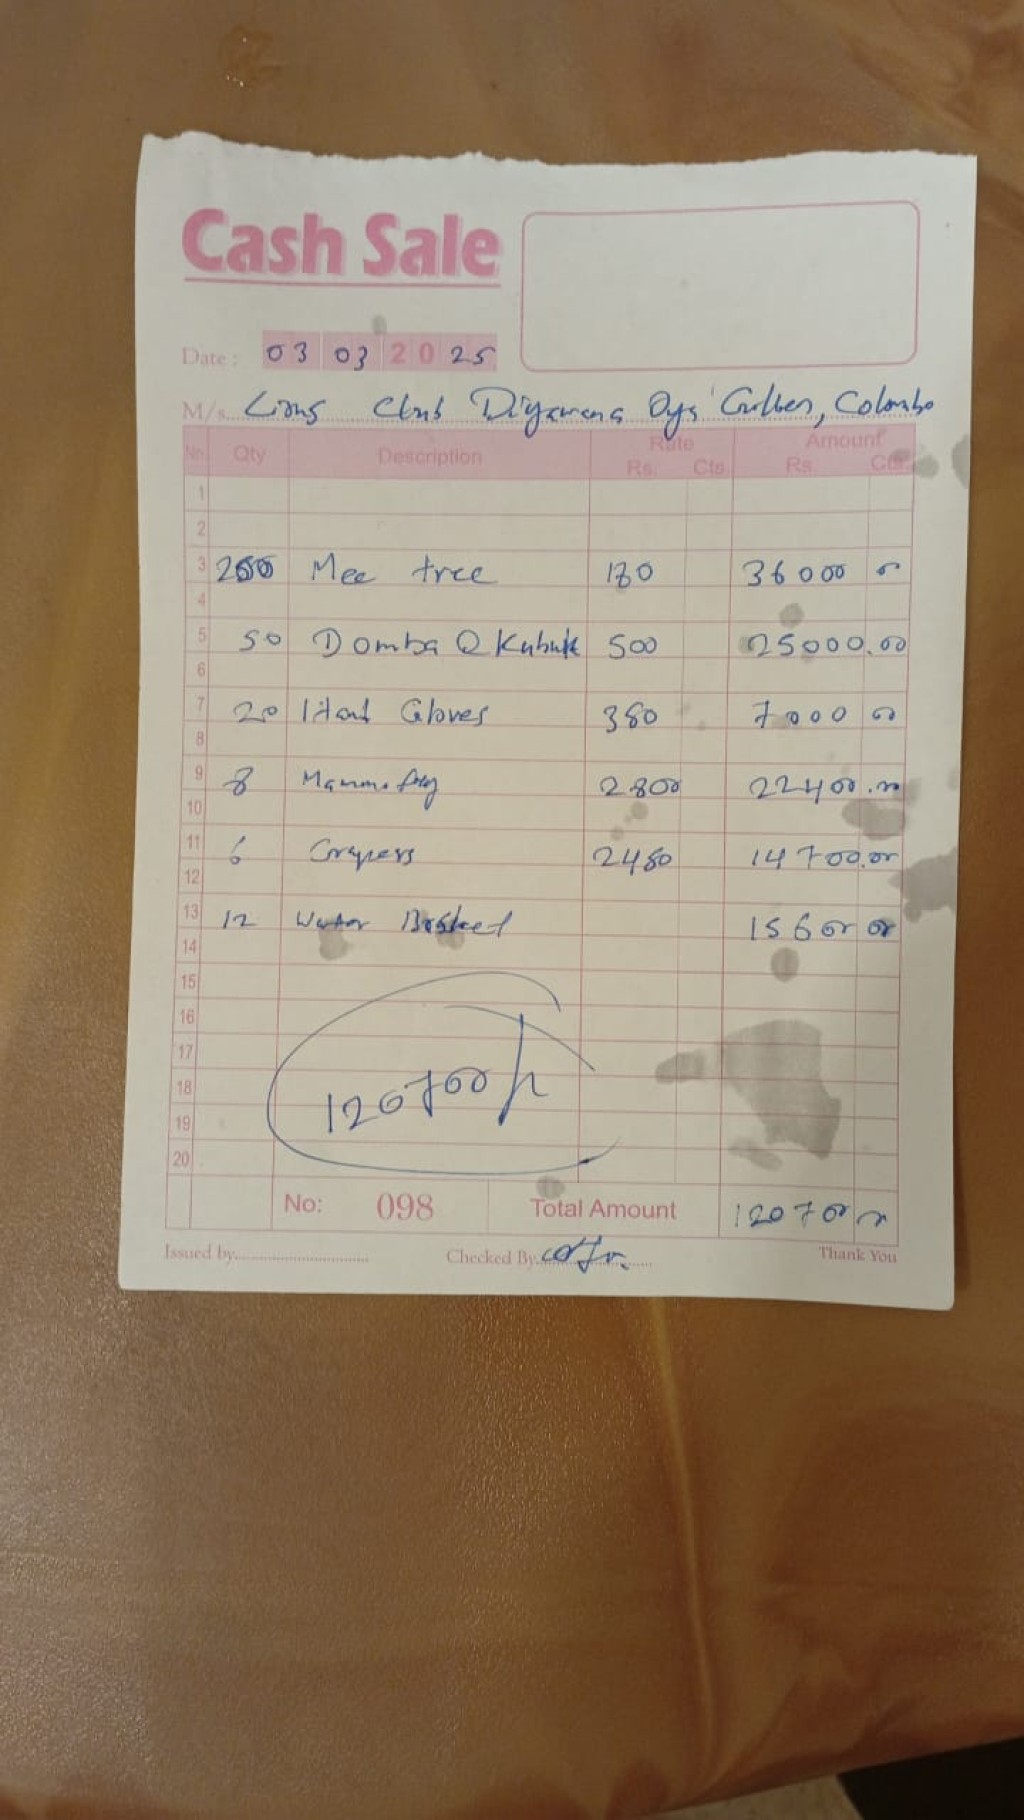 Cash Sale
Date : 03 03 20 25
M/s. Lions Club Diyawanna Oya Colombo
No. Qty Description Rate Rs. Cts. Amount Rs. Cts.
1
2
3 200 Mee tree 180 36000 00
4
5 50 Domba & Kubuk 500 25000.00
6
7 20 Hand Gloves 380 7000 00
8
9 8 2800 22400.00
10
11 6 2480 14700.00
12
13 12 Water Basket 15600 00
14
15
16
17
18 120700/
19
20
No: 098 Total Amount 120700
Issued by Checked By Thank You